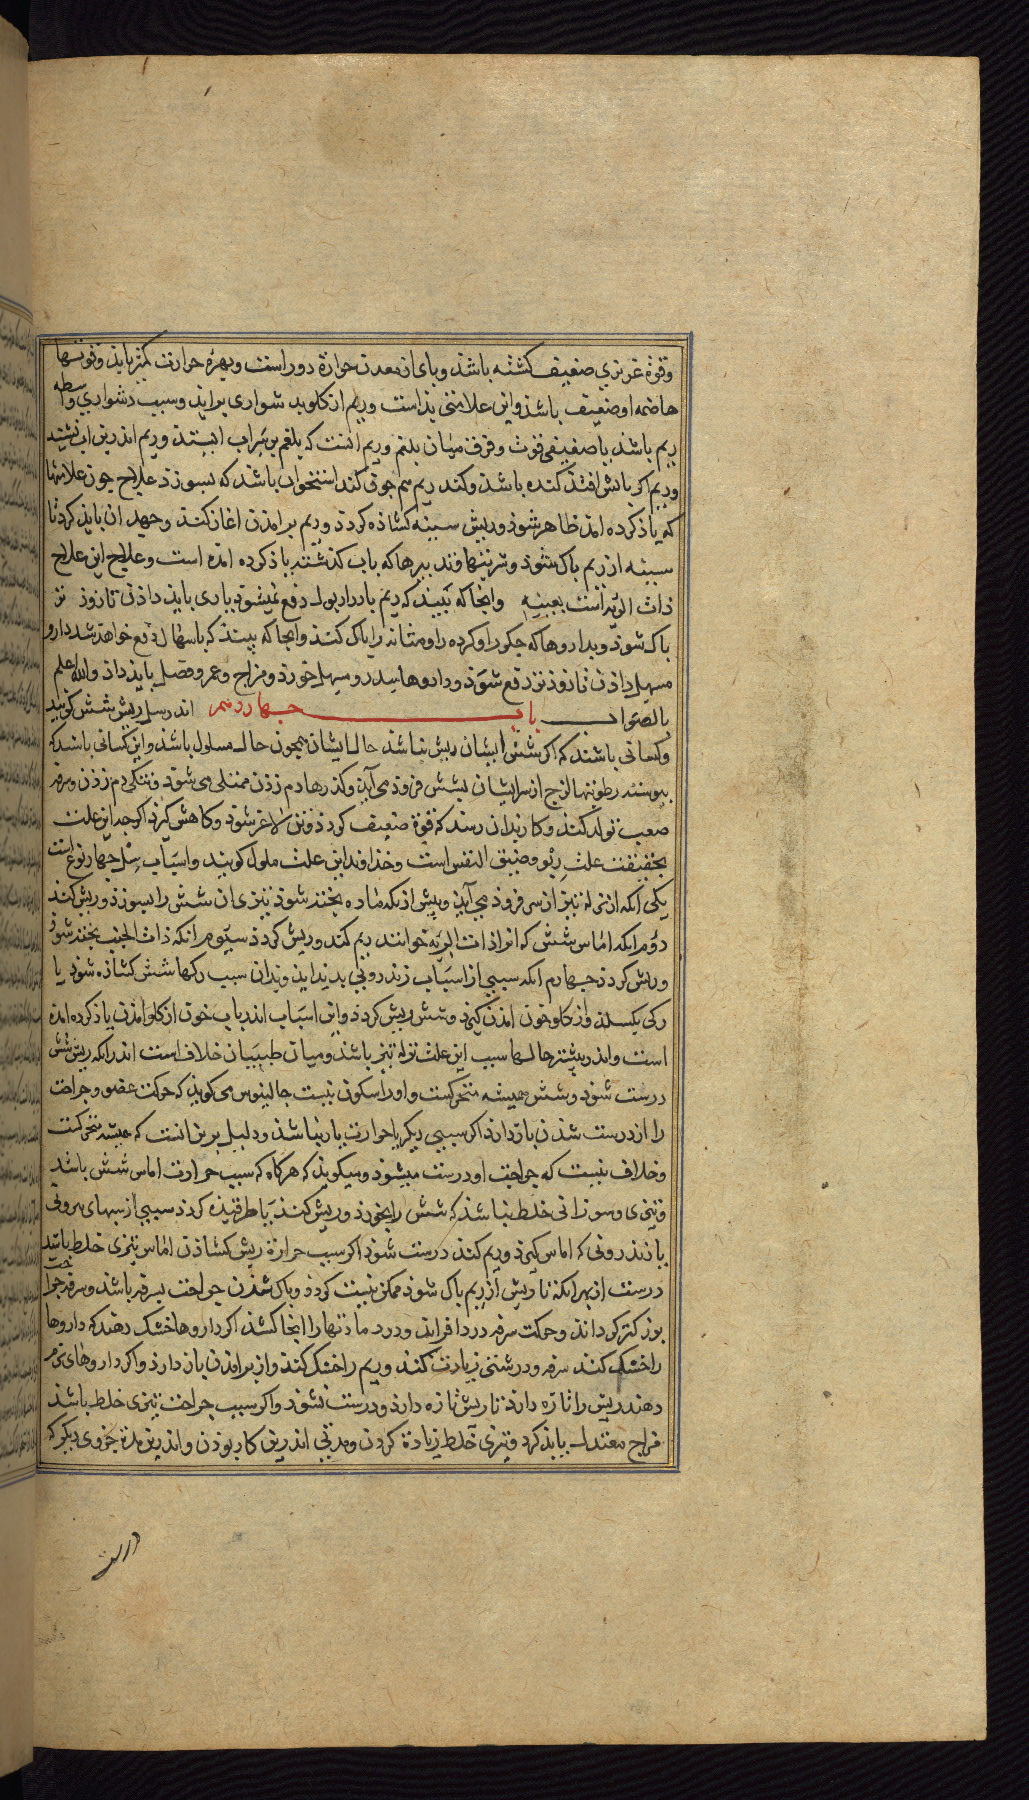 وقوة غریزی ضعیف کشته باشذ وبای از معدن حرارة دور است وبهرهٔ حرارت کمتر یابذ وقوتها
هاضمه او ضعیف باشذ واین علامتی بذ است وریم از کلو بذشواری براید وسبب دشواری
ریم باشذ یا ضعیفی قوت وفرق میان بلغم وریم انست که بلغم بر سراب ایستد وریم اندر بن اب نشیند
وریم اکر باتش افتذ کنده باشذ وکند ریم هم جون کند استخوان باشذ که بسوزذ علاج جون علامتها
که یاذ کرده امذ ظاهر شوذ وریش سینه کشاذه کردذ وریم برامذن اغاز کند وجهد ان بایذ کرد تا
سینه از ریم پاک شوذ وشربتها وتدبیرها که باب کذشته یاذ کرده امذه است وعلاج این علاج
ذات الریه است بعینه وانجا که بیند که ریم بادرار بول دفع میشوذ یاری بایذ داذن تا زوذ تر
پاک شوذ وبدارو‌ها که جکر را وکرده را ومثانه را پاک کند وانجا که بیند که باسهال دفع خواهد شد دارو
مسهل داذن تا زوذ تر دفع شوذ وداروها مدر ومسهل خورذ ومزاج وعمر وفصل بایذ داذ والله اعلم
بالصواب باب جهاردهم اندر سل ریش شش کویند
وکسانی باشند که اکر شش ایشان ریش نباشذ حال ایشان همجون حال مسلول باشذ واین کسانی باشند که
پیوسته رطوبتها لزج از سر ایشان بشش فروذ می آید وکذرها دم زذن ممتلی می شوذ وتنکی دم زذن وسرفه
صعب تولد کند وکار بدان رسد که قوة ضعیف کردذ وتن لاغر شوذ وکاهش کیرذ اکرجه این علت
بحقیقت علت ربو وضیق النفس است وخذاوند این علت ملول کویند واسباب سل جهار نوع است
یکی انکه از نزله تیز از سر فروذ می آید وپیش ازانکه ماده پخته شوذ تیزی ان شش را بسوزذ وریش کند
دوم انکه اماس شش که انرا ذات الریه خوانند ریم کند وریش کردذ سیوم انکه ذات الجنب پخته شوذ
وریش کردذ جهارم انکه سببی از اسباب زندرونی پدید آید وبدان سبب رکها شش کشاذه شوذ یا
رکی بکسلد واز کلو خون امذن کیرذ وشش ریش کردذ واین اسباب اندر باب خون از کلو امذن یاذ کرده امذه
است واندر بیشتر حالها سبب این علت نزله تیز باشذ ومیان طبیبان خلاف است اندر انکه ریش شش
درست شوذ وشش همیشه متحرکست واورا سکون نیست جالینوس می کویذ که حرکت عضو وجراحت
را از درست شذن باز دارذ اکر سببی دیکر با حرارت یار نباشذ ودلیل برین انست که همیشه متحرکست
وخلاف نیست که جراحت او درست میشوذ ومیکویذ که هرکاه که سبب حرارت اماس شش باشذ
وتیزی وسوزانی خلط نباشذ که شش را بخورذ وریش کند یا طرقیده کردذ سببی از سببهای بیرونی
یا زندرونی که اماس کیرذ وریم کند درست شوذ اکر سبب حرارة ریش کشاذن اماس تیزی خلط باشذ
درست از بهر انکه تا ریش از ریم پاک شوذ ممکن نیست کردذ وپاک شذن جراحت بسرفه باشذ وسرفه جراحت
بزرکتر کرداند وحرکت سرفه درد افزاید ودرد مادتها را انجا کشذ اکر داروها خشک دهند که داروها
را خشک کند سرفه ودرشتی زیادت کند وریم را خشک کند واز برامذن باز دارذ واکر داروهای تر
دهند ریش را تازه دارذ تا ریش تازه دارذ ودرست نشوذ واکر سبب جراحت تیزی خلط باشذ
مزاج معتدل بایذ کرد وتیزی خلط زیادة کردن ومدتی اندرین کار بوذن واندرین مدة جزوی دیکر که